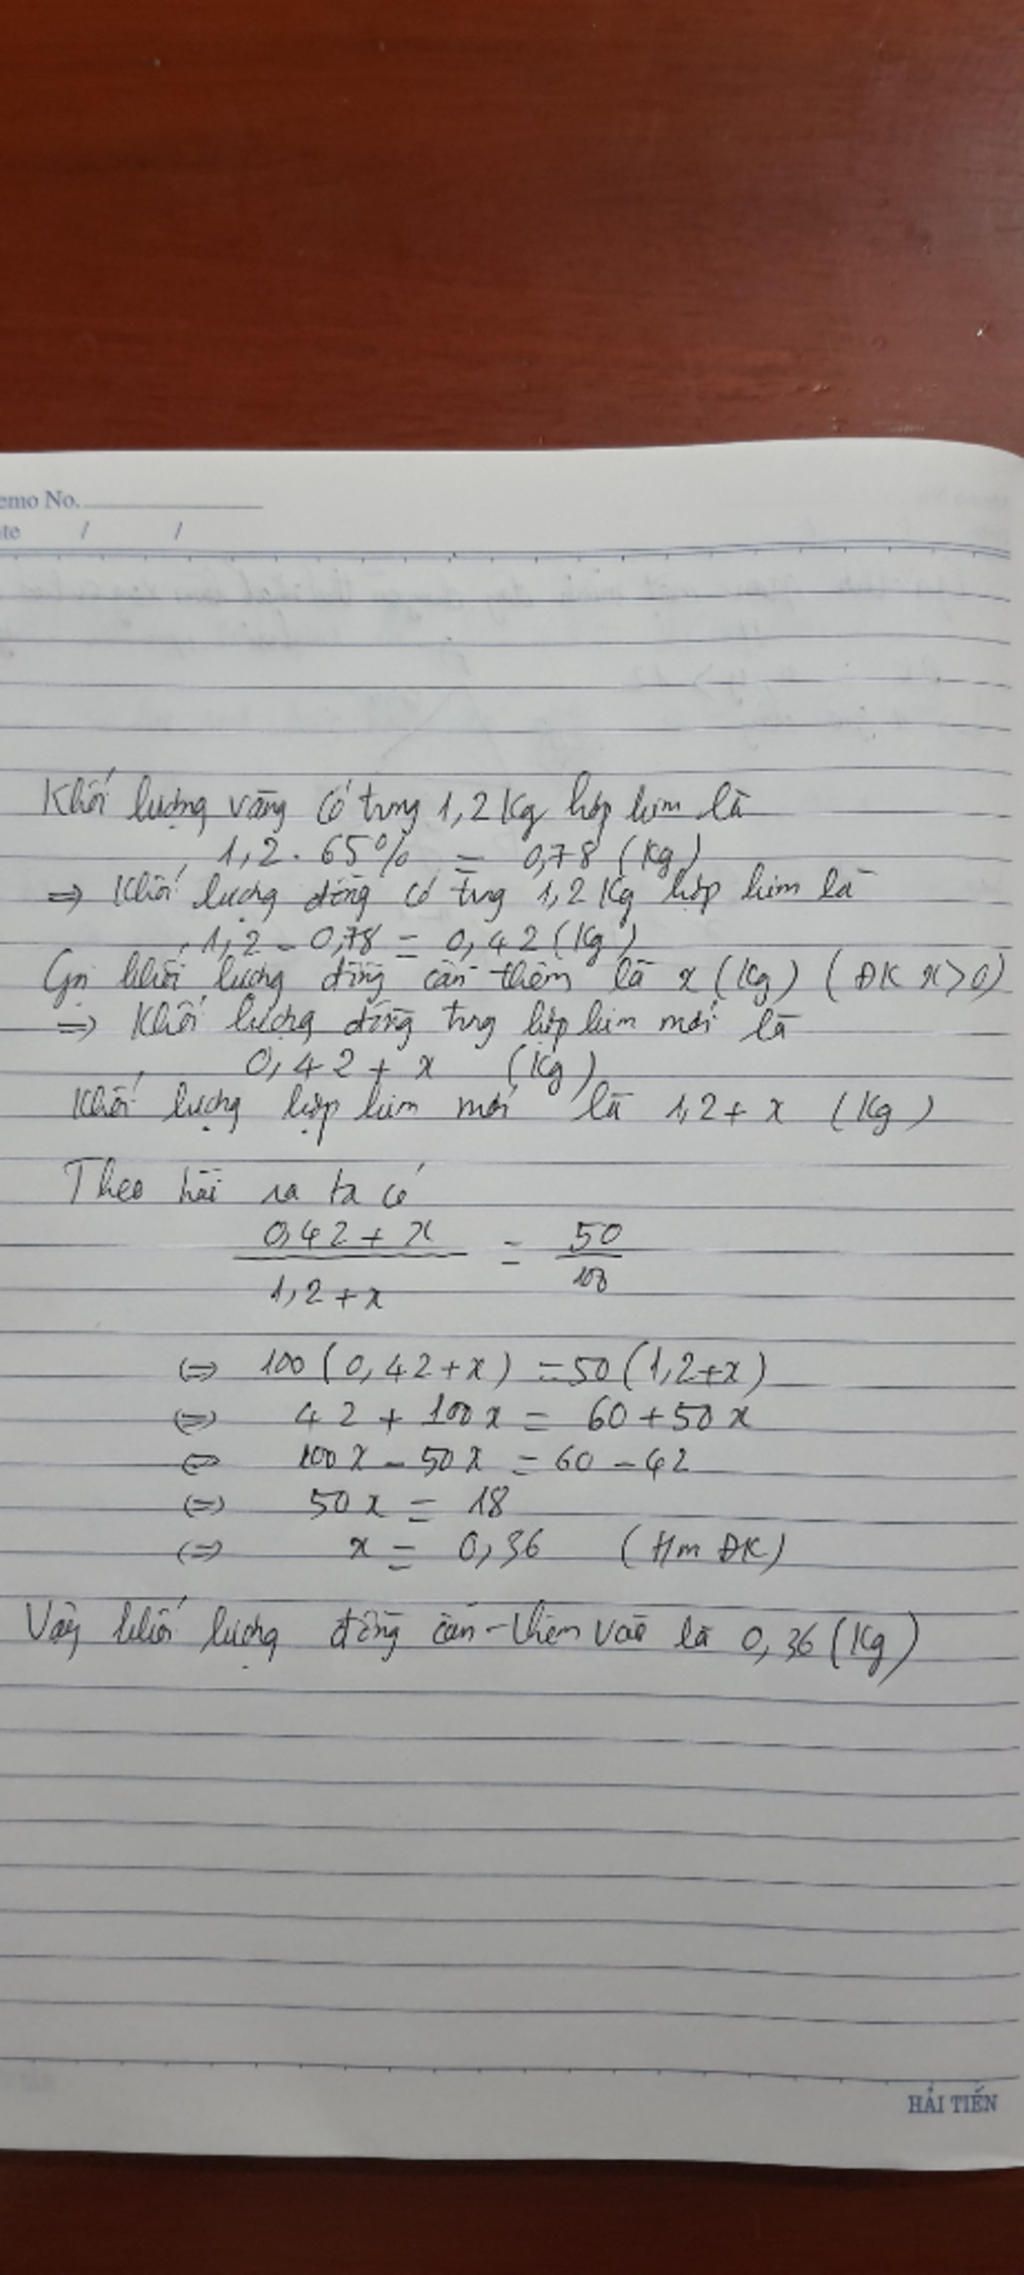 emo No.
te / /
Khối lượng vàng có trong 1,2 Kg hợp kim là
1,2 . 65% = 0,78 (Kg)
=> Khối lượng đồng có trong 1,2 Kg hợp kim là
1,2 - 0,78 = 0,42 (Kg)
Gọi khối lượng đồng cần thêm là x (Kg) ( ĐK x>0)
=> Khối lượng đồng trong hợp kim mới là
0,42 + x (Kg)
Khối lượng hợp kim mới là 1,2 + x (Kg)
Theo bài ra ta có
0,42 + x / 1,2 + x = 50 / 100
<=> 100 (0,42 + x) = 50 (1,2 + x)
<=> 42 + 100x = 60 + 50x
<=> 100x - 50x = 60 - 42
<=> 50x = 18
<=> x = 0,36 (tm ĐK)
Vậy khối lượng đồng cần thêm vào là 0,36 (Kg)
HẢI TIẾN